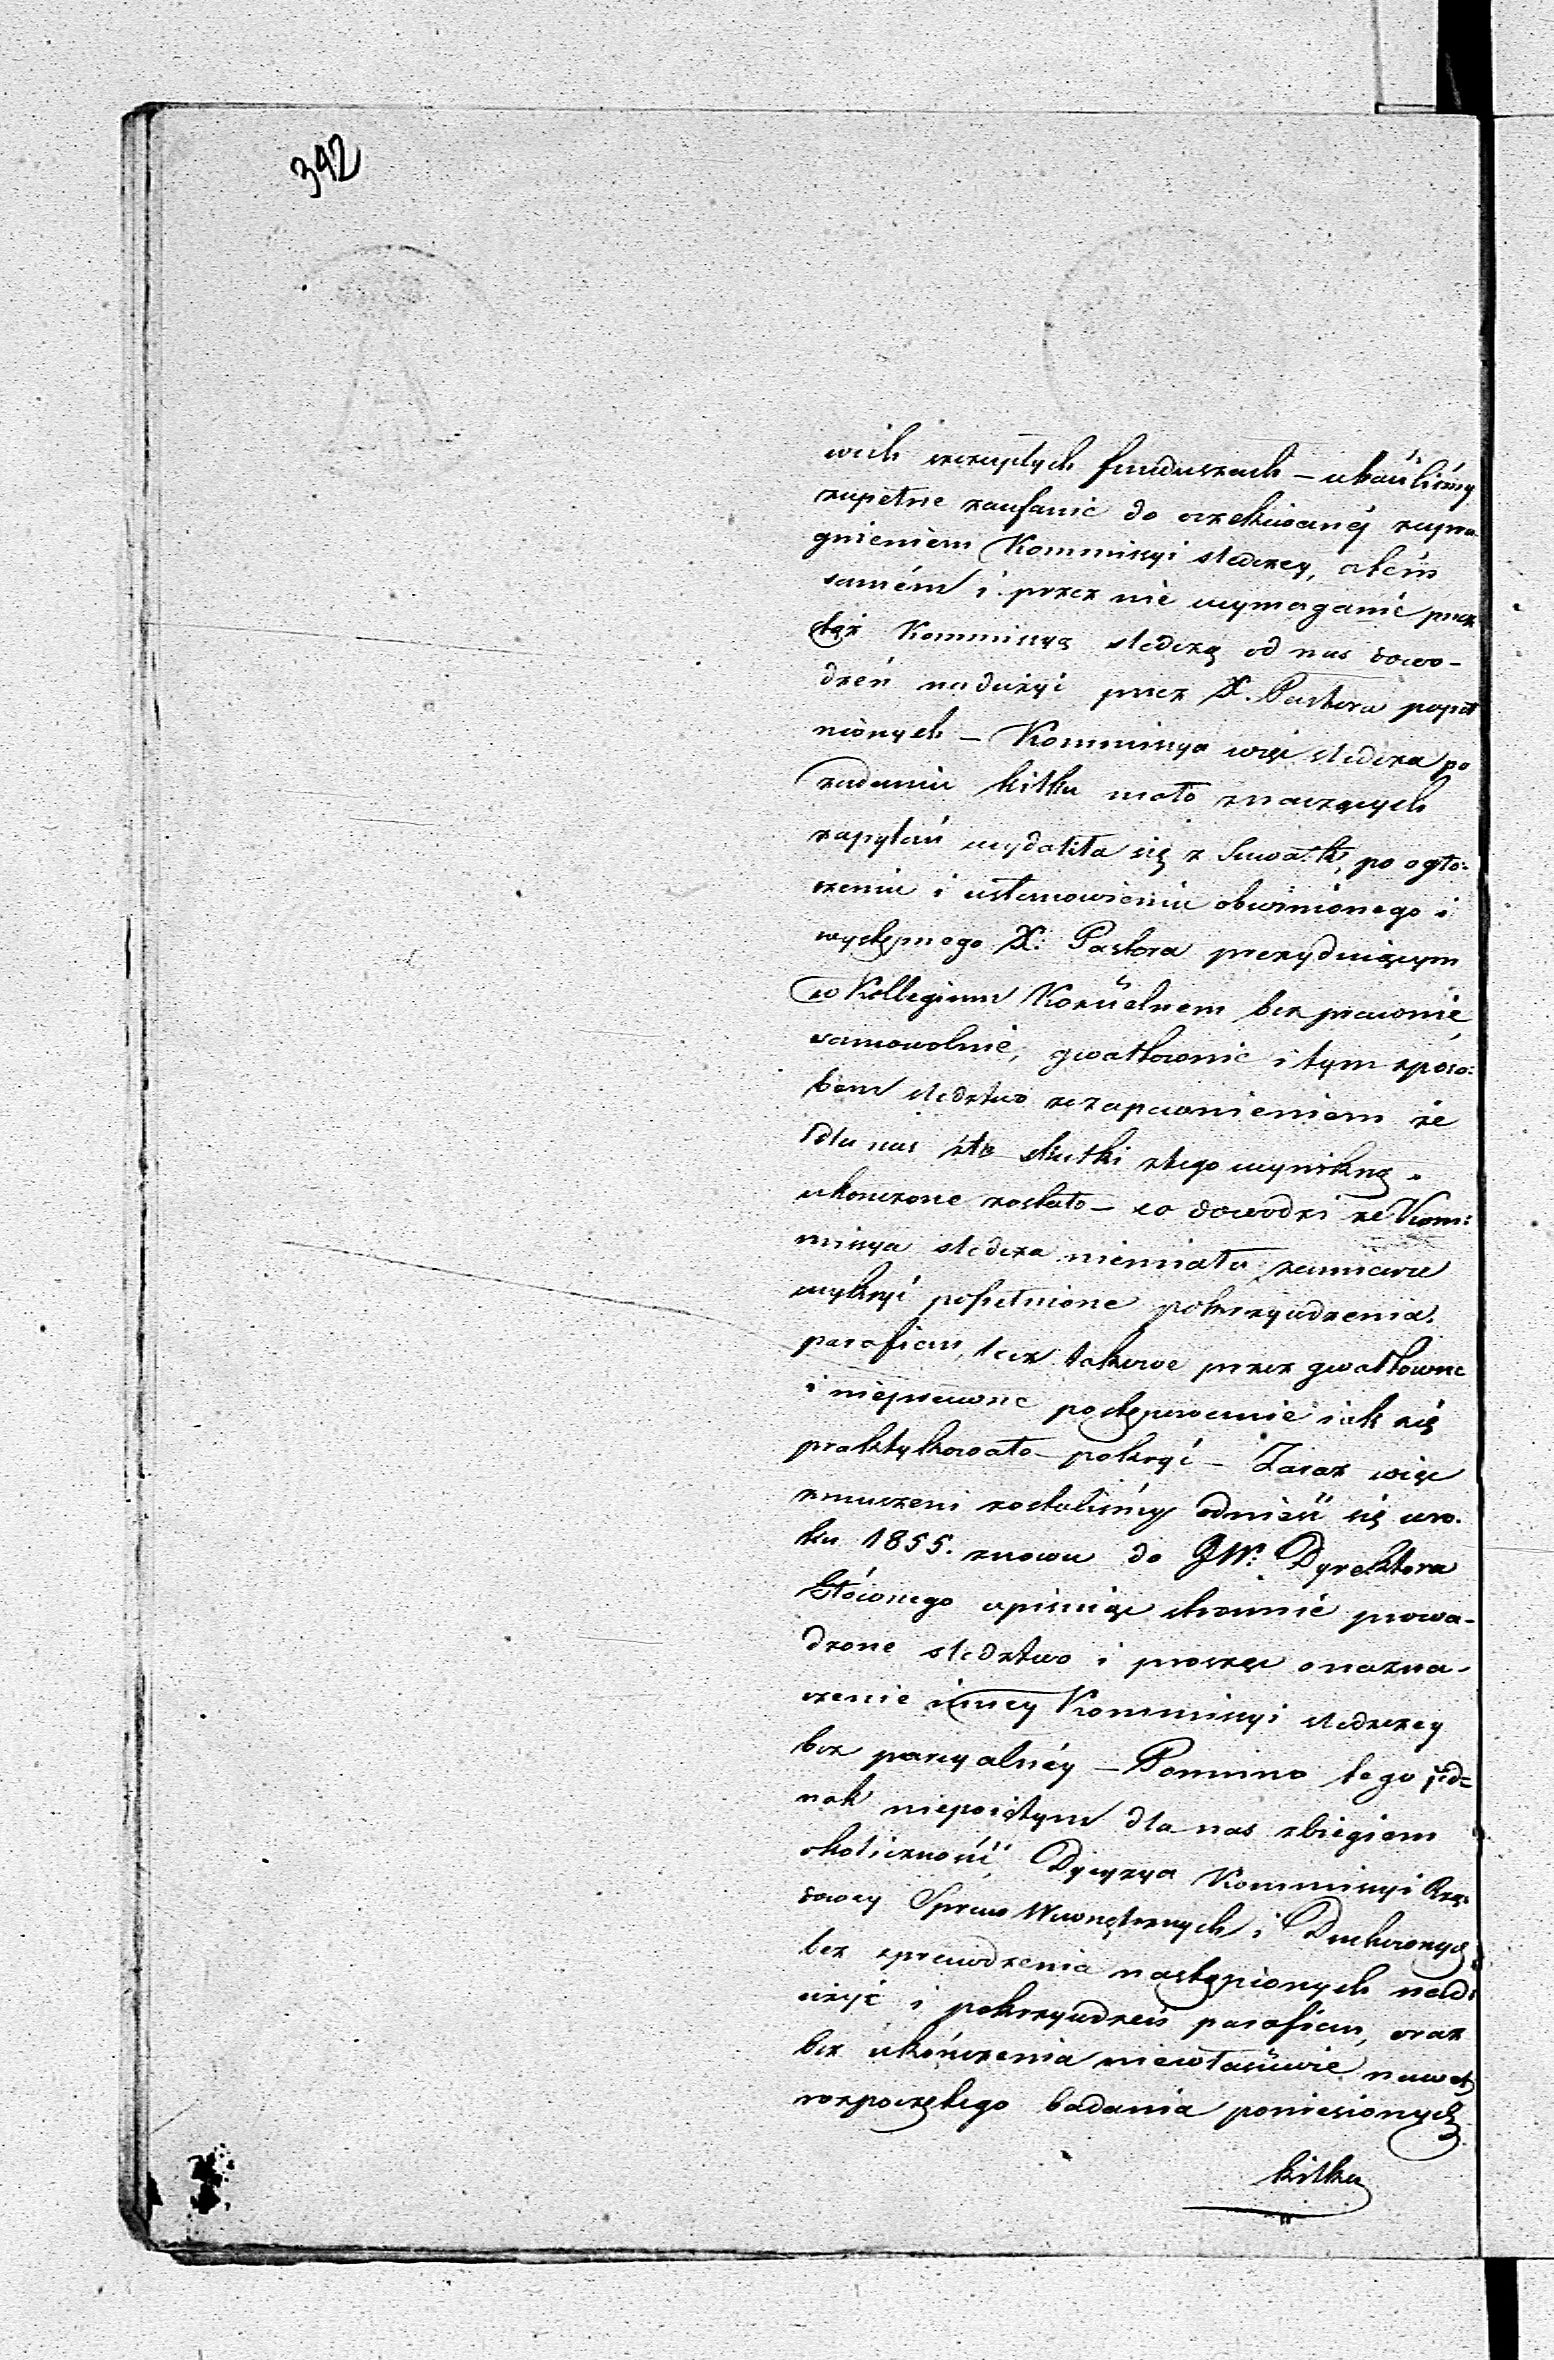 392
wich szczupłych funduszach – utraciliśmy
zupełne zaufanie do oczekiwanéj z upra-
gnieniem Kommissyi sledczey, a tém
samém i przez nie wymaganie przez
też Kommissyą sledczą od nas dowo-
dzeń nadużyć przez X. Pastora popeł
nionych – Kommissya więc sledcza po
zadaniu kilku mało znaczących
zapytań wydaliła się z Suwałk, po ogło-
szeniu i ustanowieniu obwinionego i
występnego X: Pastora prezydującym
w Kollegium Kościelnem bezprawnie,
samowolnie, gwałtownie i tym sposo-
bem sledztwo z zapewnieniem że
dla nas złe skutki z tego wynikną,
ukonczone zostało – co dowodzi że Kom:
missya sledcza niemiała zamiaru
wykryć popełnione pokrzywdzenia
parafian, lecz takowe przez gwałtowne
i nieprawne postępowanie iak się
praktykowało pokryć – Zaraz więc
zmuszeni zostaliśmy odnieść się w ro-
ku 1855. znowu do JW: Dyrektora
Głównego opisując stronnie prowa-
dzone sledztwo i prosząc o nazna-
czenie inney Kommissyi sledczey
bez parcyalnéy – Pomimo tego jed=
nak niepojętym dla nas zbiegiem
okoliczności, Decyzya Kommissyi Rzą-
dowey Spraw Wewnętrznych i Duchownych
bez sprawdzenia nastąpionych nad-
użyć i pokrzywdzeń parafian, oraz
bez ukończenia niewłaściwie nawet
rozpoczętego badania poniesionych
kilku